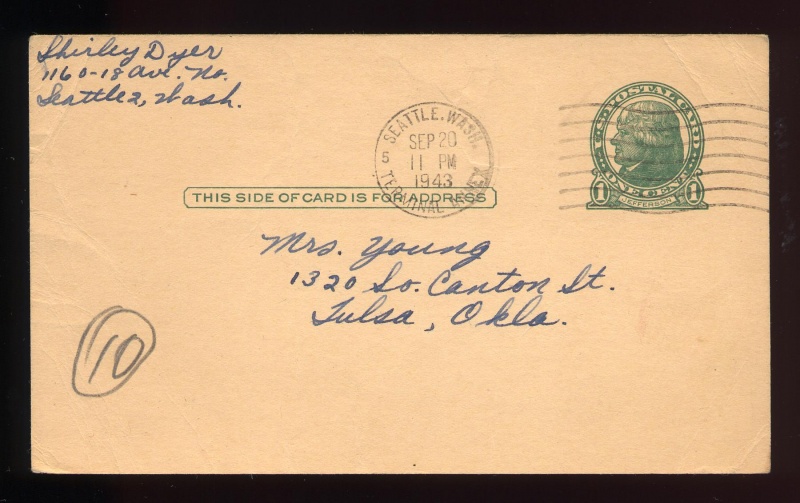 Shirley Dyer
1160-18 Ave. No.
Seattle 2, Wash.
SEATTLE, WASH.
5
SEP 20
11 PM
1943
TERMINAL ANNEX
U.S. POSTAL CARD
1 ONE CENT 1
JEFFERSON
THIS SIDE OF CARD IS FOR ADDRESS
Mrs. Young
1320 So. Canton St.
Tulsa, Okla.
10